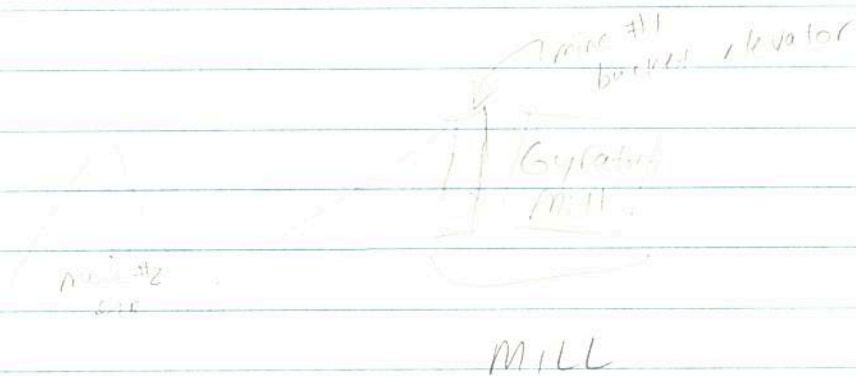 mine #1
bucket elevator
Gyratory
Mill
mine #2
MILL